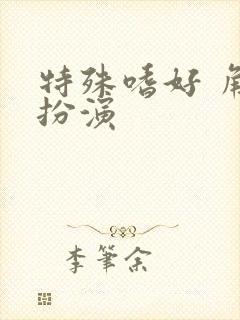 特殊嗜好 角
扮演
李筆余